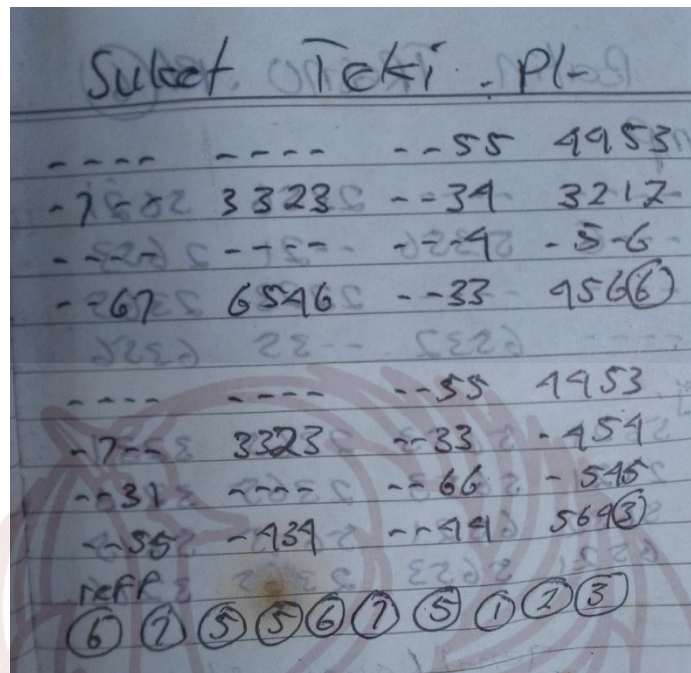 Suket Teki . Pl-
- - - - - - - - - - 55 4453
- 7 - - 3323 - - 34 3217
- - - - - - - - - - - 4 - 5 - 6
- - 67 6546 - - 33 456⑥
- - - - - - - - - - 55 4453
- 7 - - 3323 - - 33 - 454
- - 31 - - - - - - 66 - 545
- - 35 - 434 - - 44 564③
reff
⑥ ⑦ ⑤ ⑤ ⑥ ⑦ ⑤ ① ② ③